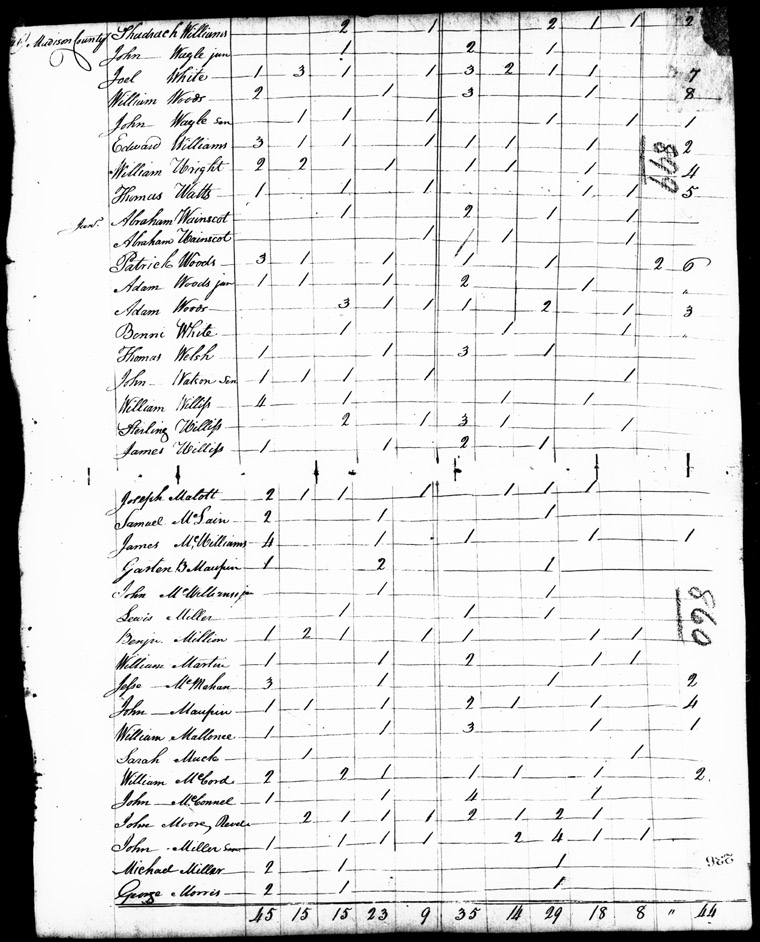 Madison County Shadrach Williams 2 1 2 1 1 2
John Wagle jun 1 2 1
Joel White 1 3 1 1 3 2 1 1 7
William Woods 2 1 3 1 8
John Wagle sen 1 1 1 1 1 1
Edward Williams 3 1 1 1 1 1 1 2
William Wright 2 2 1 1 1 1 4
Thomas Watts 1 1 1 1 1 5
899
Abraham Wainscot 1 2 1 1
Junr. Abraham Wainscot 1 1 1 1
Patrick Woods 3 1 1 1 1 2 6
Adam Woods jun 1 1 1 2 1 "
Adam Woods 3 1 1 1 2 1 3
Benni White 1 1 1 "
Thomas Welsh 1 1 3 1
John Watson sen 1 1 1 1 1
William Williss 4 1 1 1
Sterling Williss 2 1 3 1
James Williss 1 1 2 1
Joseph Matott 2 1 1 1 1 1 1
Samuel McLain 2 1 1
James McWilliams 4 1 1 1 1
Garten B Maupin 1 2 1
John McWilliams jun 1 1
Lewis Miller 1 1 1
860
Benjn. Million 1 2 1 1 1 1 1
William Martin 1 1 2 1 1
Jesse McMahan 3 1 1 2
John Maupin 1 1 1 2 1 1 4
William Mallonee 1 1 3 1 1
Sarah Muck 1 1
William McCord 2 2 1 1 1 1 2
John McConnel 1 1 4 1
John Moore, Revd. 2 1 1 1 2 1 2 1
John Miller Sen 1 1 1 1 2 4 1 1
236
Michael Miller 2 1 1
George Morris 2 1 1
45 15 15 23 9 35 14 29 18 8 " 44